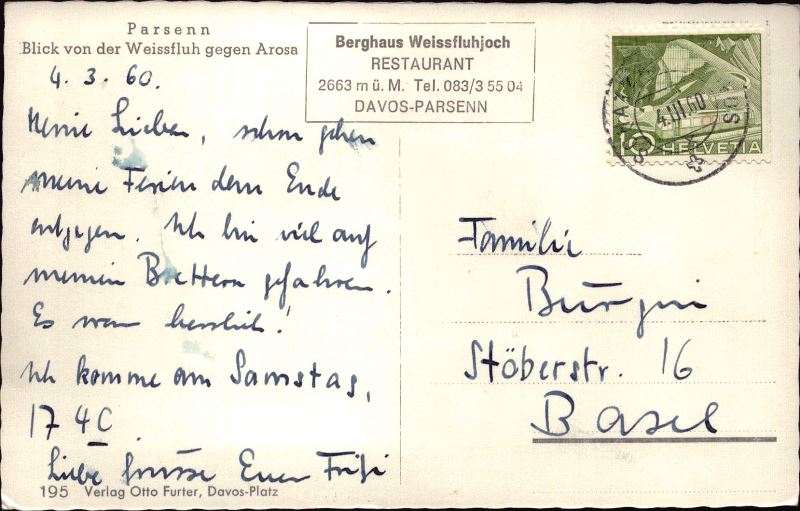 Parsenn
Blick von der Weissfluh gegen Arosa
4. 3. 60.
Meine Lieben, schon gehen
meine Ferien dem Ende
entgegen. Ich bin viel auf
meinen Brettern gefahren.
Es war herrlich!
Ich komme am Samstag,
17 40
Liebe Grüsse Euer
195 Verlag Otto Furter, Davos-Platz
Berghaus Weissfluhjoch
RESTAURANT
2663 m ü. M. Tel. 083/3 55 04
DAVOS-PARSENN
4.III.60
10 HELVETIA
Familie
Bürgin
Stöberstr. 16
Basel